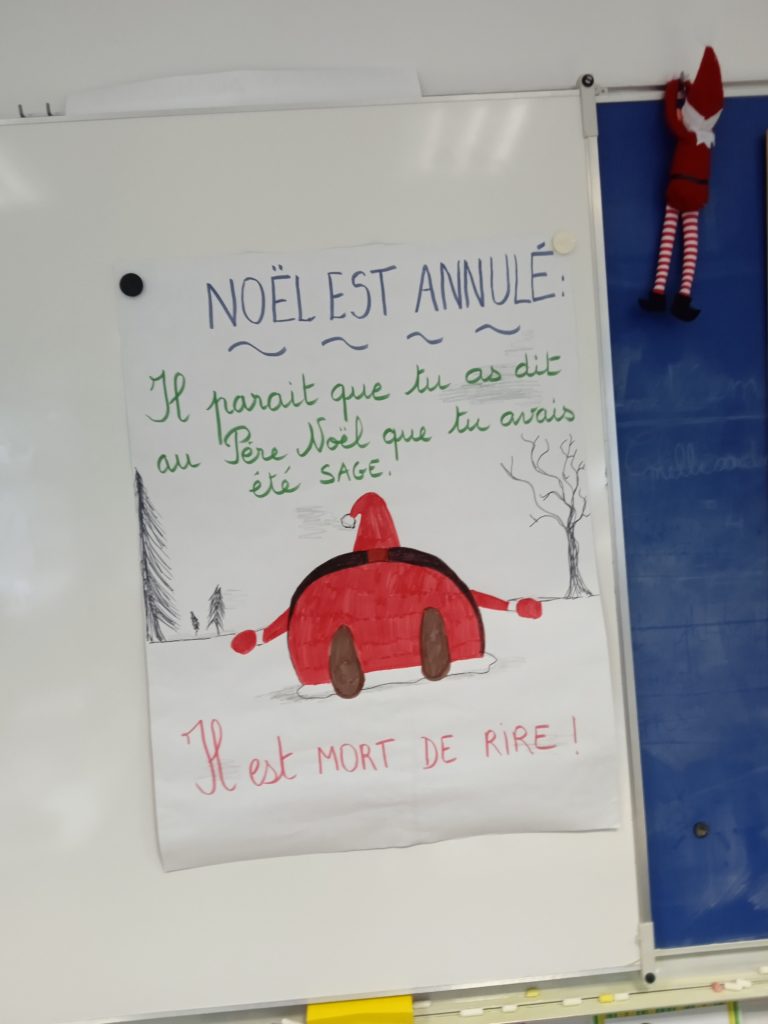 NOËL EST ANNULÉ :
Il parait que tu as dit
au Père Noël que tu avais
été SAGE.
Il est MORT DE RIRE !